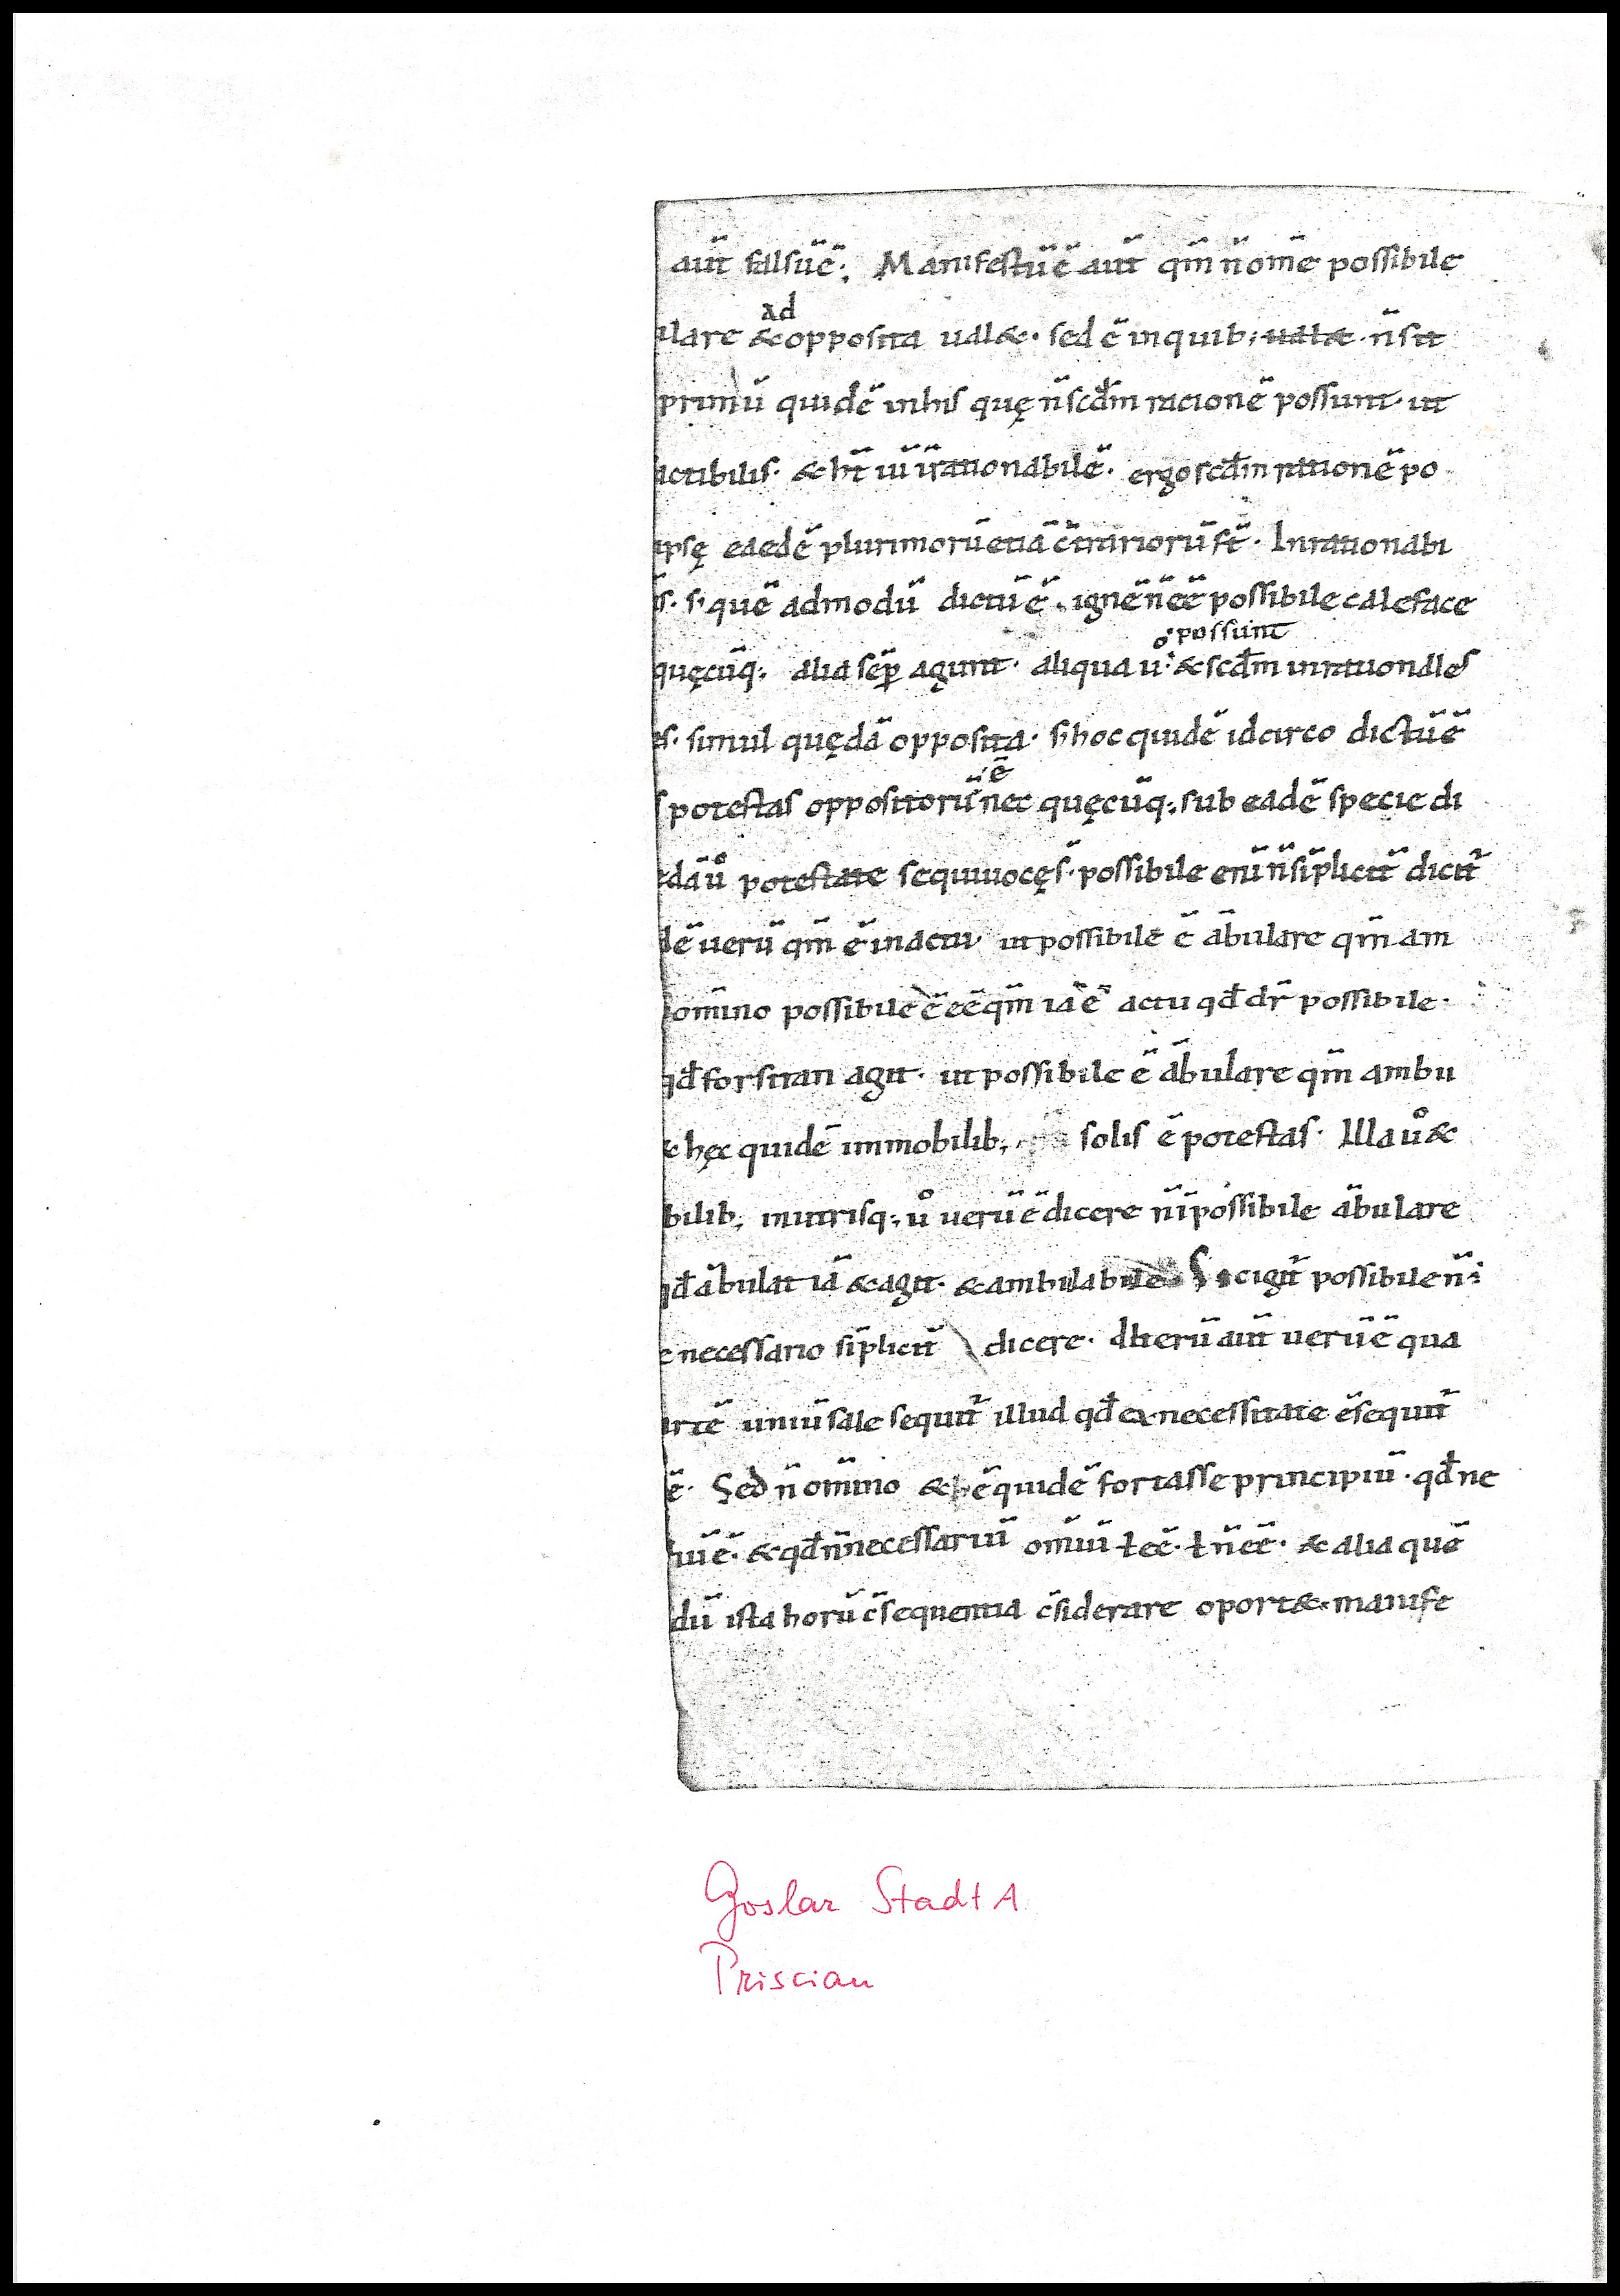 aut̄ falsū ē·; Manifestū ē aut̄ qm̄ n̄ om̄e possibile
ad
ulare & opposita ual&· sed ē in quib; ual& · n̄ sit
primū quidē in his quę n̄ scd̄m racionē possunt· ut
actibilis· & ht̄ uī irationabilē· ergo scd̄m rationē po
ipsę eaedē plurimorū etiā c̄trariorū st̄· Inrationabi
s̄· s· quē admodū dictū ē· ignē n̄ eē possibile caleface
possunt
quęcūq; alia sēp agunt· aliqua u° & scd̄m inrationales
es· simul quędā opposita· s; hoc quidē idcirco dictū ē
ē
s potestas oppositorū nec quęcūq; sub eadē specie di
edā u° potestate sequiuocę s̄· possibile enī n̄ sīplicit̄ dicit᷑
dē uerū qm̄ ē in actu· ut possibile ē ābulare qm̄ am
om̄ino possibile ē eē qm̄ iā ē actu qd̄ dr̄ possibile·
qd̄ forsitan agit· ut possibile ē ābulare qm̄ ambu
& hęc quidē immobilib; solis ē potestas· Illa u° &
bilib; in utrisq; u° uerū ē dicere n̄ īpossibile ābulare
qd̄ ābulat iā & agit· & ambulabile· Sic igit᷑ possibile n̄ ē
e necessario sīplicit̄ dicere· alterū aut̄ uerū ē qua
artē uniūsale sequit᷑ illud qd̄ ex necessitate ē sequit᷑
ē· Sed n̄ om̄ino & ē quidē fortasse principiū· qd̄ ne
uī ē· & qd̄ n̄ necessariū om̄iū ł eē· ł n̄ eē· & alia quē
dū ista horū c̄sequentia c̄siderare oport&· manife
Goslar StadtA
Priscian